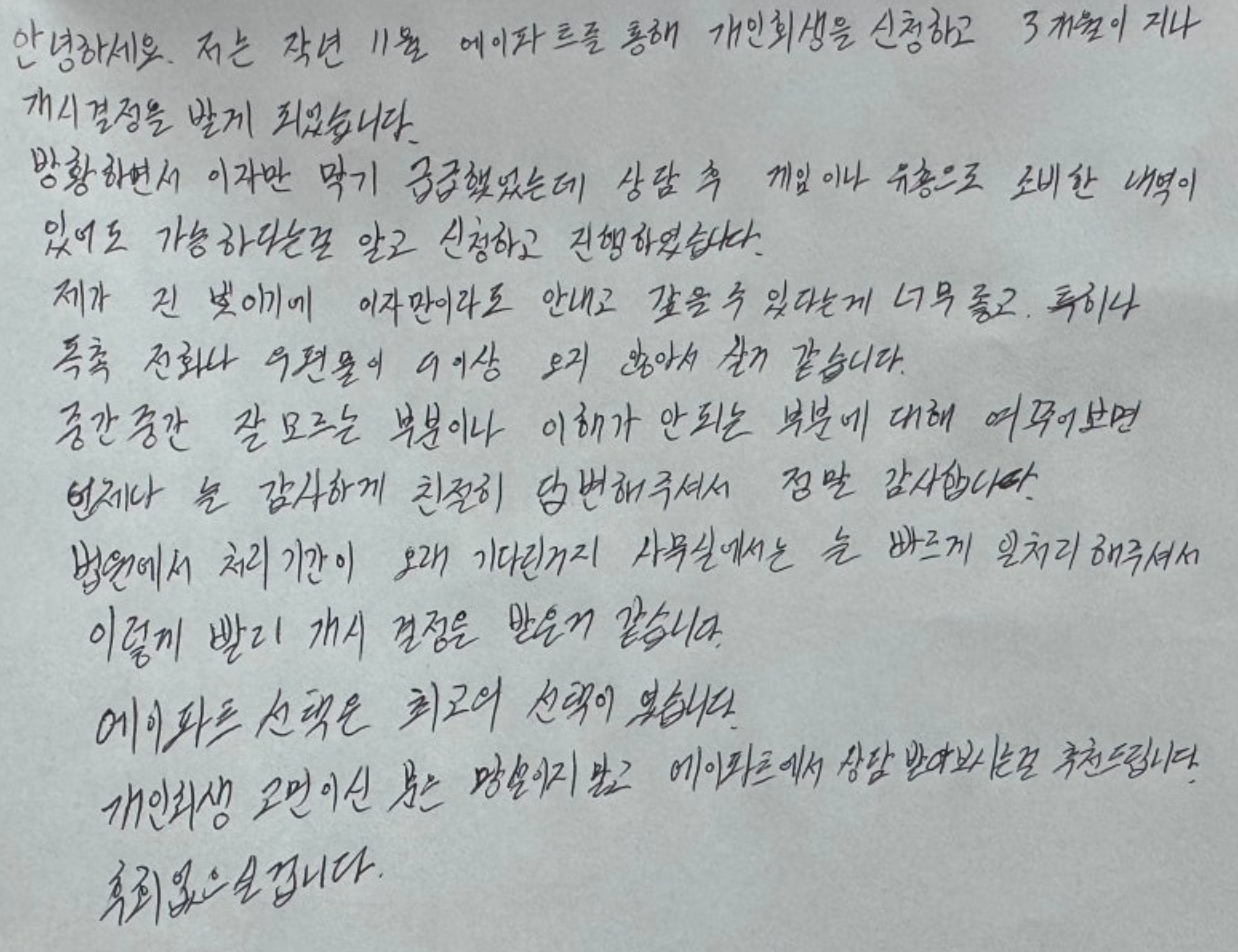 안녕하세요. 저는 작년 11월 에이파트를 통해 개인회생을 신청하고 3개월이 지나
개시결정을 받게 되었습니다.
방황하면서 이자만 막기 급급했었는데 상담 후 게임이나 유흥으로 소비한 내역이
있어도 가능하다는걸 알고 신청하고 진행하였습니다.
제가 진 빚이기에 이자만이라도 안내고 갚을 수 있다는게 너무 좋고. 특히나
독촉 전화나 우편물이 더이상 오지 않아서 살거 같습니다.
중간중간 잘 모르는 부분이나 이해가 안되는 부분에 대해 여쭈어보면
언제나 늘 감사하게 친절히 답변해주셔서 정말 감사합니다.
법원에서 처리기간이 오래 기다린거지 사무실에서는 늘 빠르게 일처리해주셔서
이렇게 빨리 개시 결정을 받은거 같습니다.
에이파트 선택은 최고의 선택이 었습니다.
개인회생 고민이신 분은 망설이지 말고 에이파트에서 상담 받아보시는걸 추천드립니다.
후회없으실겁니다.